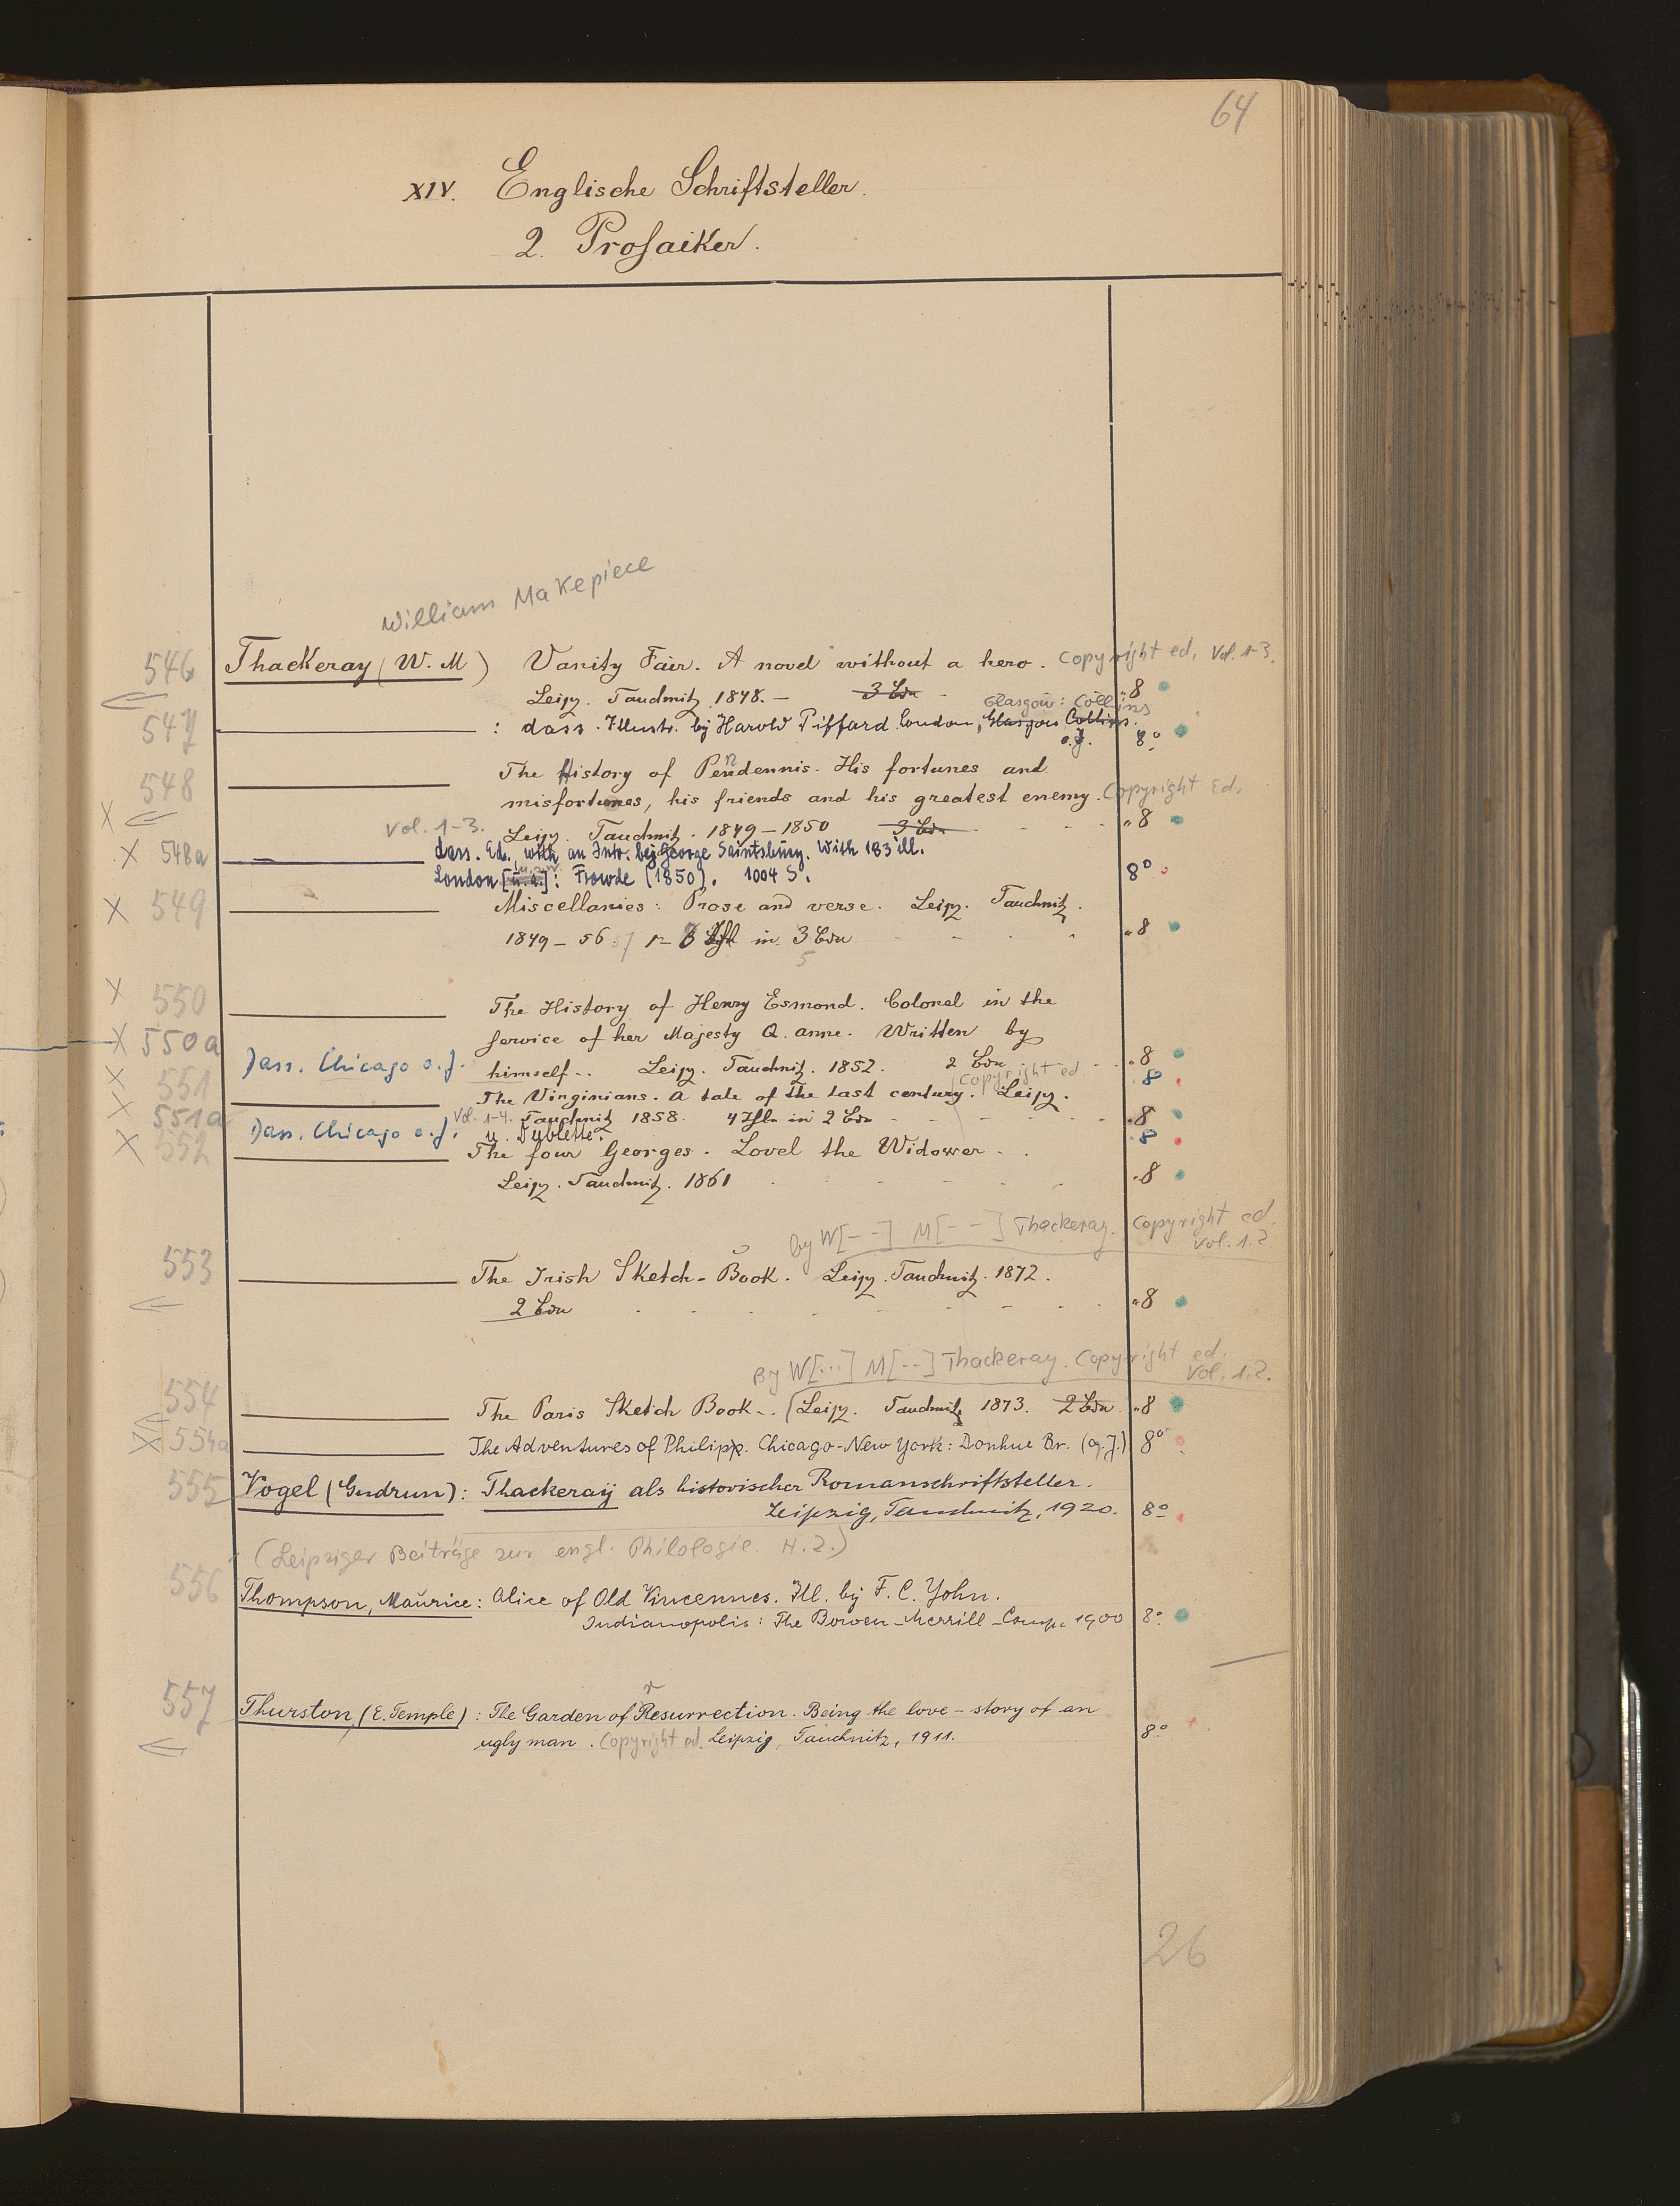 64
XIV. Englische Schriftsteller.
2. Prosaiker.
William Makepiece
546 Thackeray (W. M) Vanity Fair. A novel without a hero. Copyright ed. Vol. 1-3.
Leipz. Tauchnitz 1848. — 3 Bde "8
Glasgow: Collins
547 : dass. Illustr. by Harold Piffard. London, Glasgow Collins.
o.J. 8°
548 The History of Pendennis. His fortunes and
misfortunes, his friends and his greatest enemy. Copyright Ed.
X Vol. 1-3. Leipz. Tauchnitz. 1849 – 1850 3 Bde "8
X 548a dass. Ed. with an Intr. by George Saintsbury. With 183 ill.
London [u.a.]: Frowde (1850). 1004 S. 8°
X 549 Miscellanies: Prose and verse. Leipz. Tauchnitz.
1849 – 56 57 1– 8 in 3 Bdn "8
5
X 550 The History of Henry Esmond. Colonel in the
Service of her Majesty Q. anne. Written by
X 550a himself.. Leipz. Tauchnitz. 1852. 2 Bde "8
Dass. Chicago o.J. "8
Copyright ed.
X 551 The Virginians. A tale of the last century. Leipz.
Vol. 1-4. Tauchnitz 1858. 4 in 2 Bde "8
X 551a Dass. Chicago o.J. u. Dublette. "8
X 552 The four Georges. Lovel the Widower.
Leipz. Tauchnitz. 1861 "8
by W[--] M[--] Thackeray. Copyright ed.
Vol. 1.2
553 The Irish Sketch-Book. Leipz. Tauchnitz. 1872.
2 Bde "8
By W[...] M[--] Thackeray. Copyright ed.
Vol. 1.2.
554 The Paris Sketch Book.. Leipz. Tauchnitz 1873. 2 Bde "8
X 554a The Adventures of Philipp. Chicago-New York: Donhue Br. (o.J.) 8°
555 Vogel (Gudrun): Thackeray als historischer Romanschriftsteller.
Leipzig, Tauchnitz, 1920. 8°
(Leipziger Beiträge zur engl. Philologie. H. 2.)
556 Thompson, Maurice: Alice of Old Vincennes. Ill. by F. C. Yohn.
Indianopolis: The Bowen-Merrill-Comp. 1900 8°
557 Thurston, (E. Temple): The Garden of Resurrection. Being the love-story of an
ugly man. Copyright ed. Leipzig, Tauchnitz, 1911. 8°
26